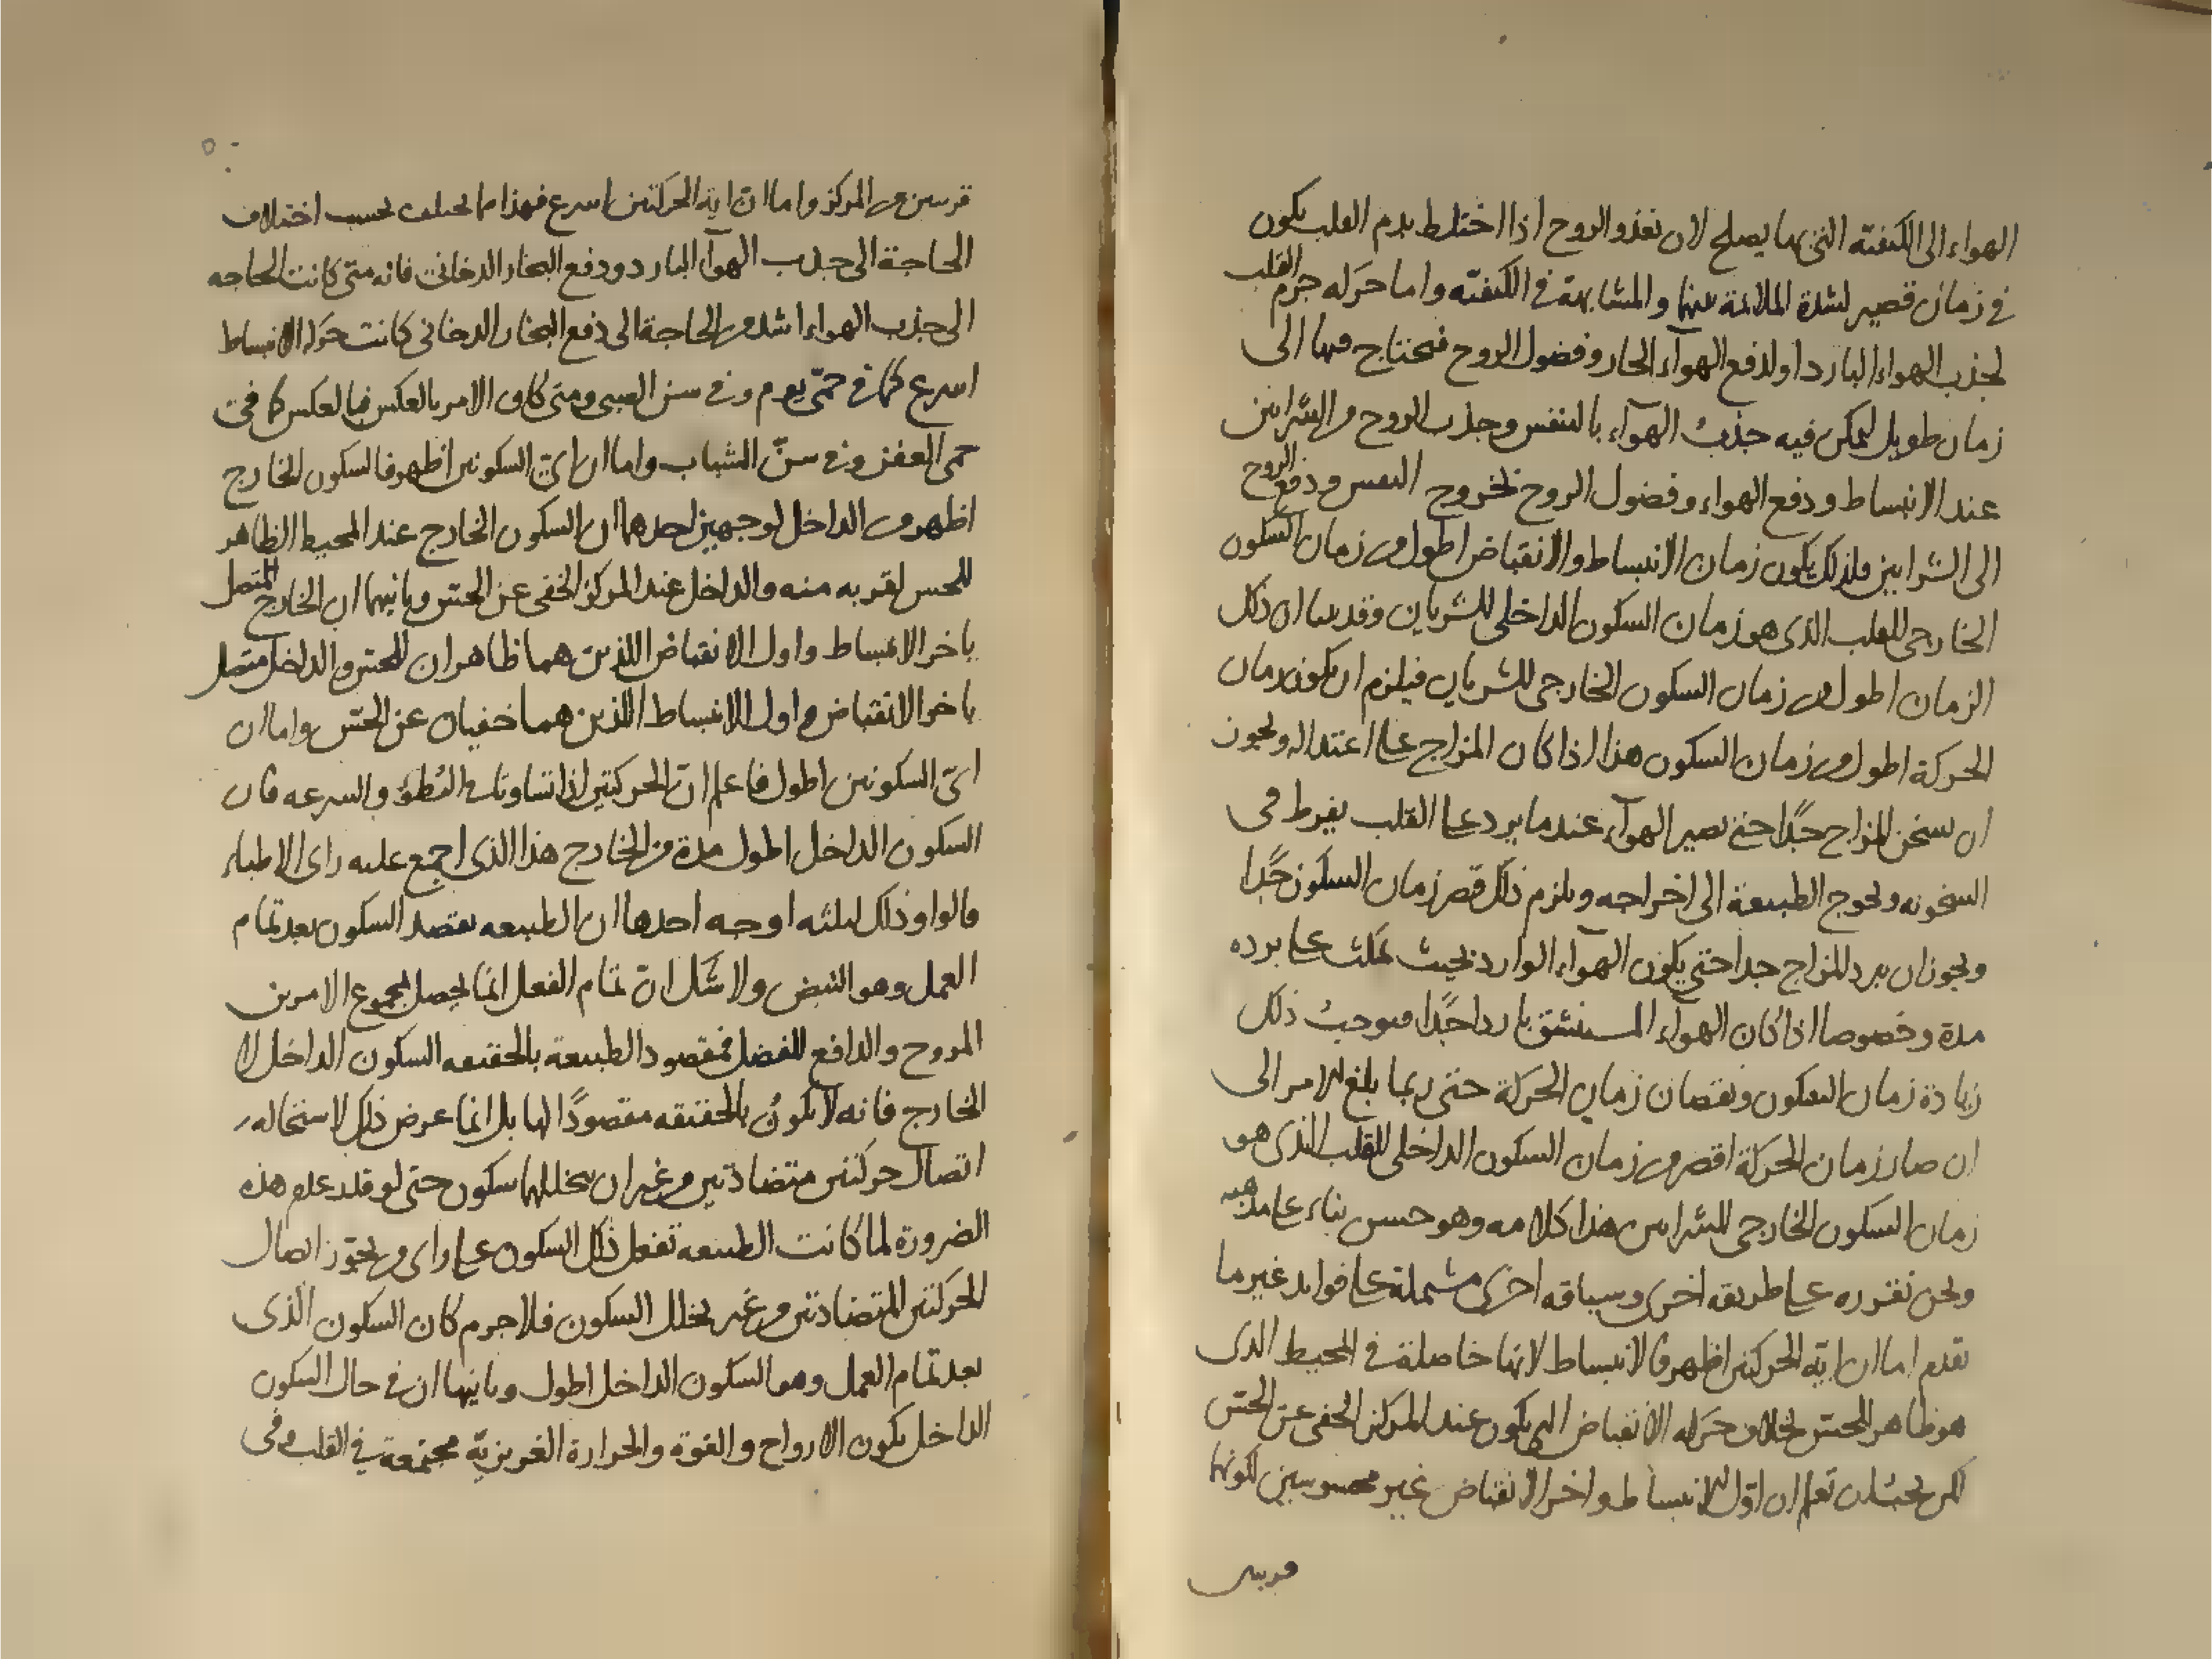 الهواء الى الكيفية التى بها يصلح لان تغذو الروح اذا اختلط بدم القلب يكون
فى زمان قصير لشدة الملائمة بينهما والمشابهة فى الكيفية واما حركه جرم القلب
لجذب الهواء البارد او لدفع الهوآء الحار وفضول الروح فيحتاج فيها الى
زمان طويل ليمكن فيه جذب الهوآء بالتنفس وجذب الروح من الشرايين
عند الانبساط ودفع الهواء وفضول الروح بخروج النفس ودفع الروح
الى الشرايين فلذلك يكون زمان الانبساط والانقباض اطول من زمان السكون
الخارجى للقلب الذى هو زمان السكون الداخلى للشريان وقد بينا ان ذلك
الزمان اطول من زمان السكون الخارجى للشريان فيلزم ان يكون زمان
الحركة اطول من زمان السكون هذا اذا كان المزاج على اعتداله ويجوز
ان يسخن المزاج جدًا حتى يصير الهوآء عندما يرد على القلب يفرط فى
السخونه ويحوج الطبيعة الى اخراجه ويلزم ذلك قصر زمان السكون جدًا
ويجوز ان يبرد المزاج جدا حتى يكون الهوآء الوارد بحيث يمكث على برده
مدة وخصوصا اذا كان الهوآء المستنشق باردا جدًا فيوجب ذلك
زيادة زمان السكون ونقصان زمان الحركة حتى ربما بلغ الامر الى
ان صار زمان الحركة اقصر من زمان السكون الداخلى للقلب الذى هو
زمان السكون الخارجى للشرايين هذا كلامه وهو حسن بناء على مذهبه
ونحن نقرره على طريقه اخرى وسياقه اخرى مشتملة على فوايد غير ما
تقدم اما ان اية الحركتين اظهر فالانبساط لانها حاصلة فى المحيط الذى
هو ظاهر للحس بخلاف حركه الانقباض التى يكون عند المركز الخفى عن الحس
لكن يجب ان تعلم ان اوّل الانبساط واخر الانقباض غير محسوسين لكونهما
قريبين
قريبين من المركز واما ان اية الحركتين اسرع فهذا مما يختلف بحسب اختلاف
الحاجة الى جذب الهوآ البارد ودفع البخار الدخانى فانه متى كانت الحاجه
الى جذب الهواء اشد من الحاجة الى دفع البخار الدخانى كانت حركه الانبساط
اسرع كما فى حمّى يوم وفى سن الصبى ومتى كان الامر بالعكس فبالعكس كما فى
حمى العفن وفى سنّ الشباب واما ان اىّ السكونين اظهر فالسكون الخارج
اظهر من الداخل لوجهين احدهما ان السكون الخارج عند المحيط الظاهر
للحس لقربه منه والداخل عند المركز الخفى عن الحس وثانيهما ان الخارج المتصل
باخر الانبساط واول الانقباض اللذين هما ظاهران للحس والداخل متصل
باخر الانقباض واول الانبساط اللذين هما خفيان عن الحس واما ان
اىّ السكونين اطول فاعلم انّ الحركتين اذا تساوتا فى البُطؤ والسرعه فان
السكون الداخل اطول مدة من الخارج هذا الذى اجمع عليه راى الاطباء
قالوا وذلك لثلثه اوجه احدها ان الطبيعه تقصد السكون بعد تمام
العمل وهو النبض ولا شكّ انّ تمام الفعل انما يحصل بمجموع الامرين
المروح والدافع للفضل فمقصود الطبيعة بالحقيقه السكون الداخل لا
الخارج فانه لا يكونُ بالحقيقه مقصودًا لها بل انما عرض ذلك لاستحاله
اتصال حركتين متضادتين من غير ان يتخللهما سكون حتى لو قدر عدم هذه
الضرورة لما كانت الطبيعه تفعل ذلك السكون على راى من يجوّز اتصال
الحركتين المتضادتين من غير تخلل السكون فلا جرم كان السكون الذى
بعد تمام العمل وهو السكون الداخل اطول وثانيها ان فى حال السكون
الداخل يكون الارواح والقوة والحرارة الغريزيّة مجتمعة فى القلب وفى